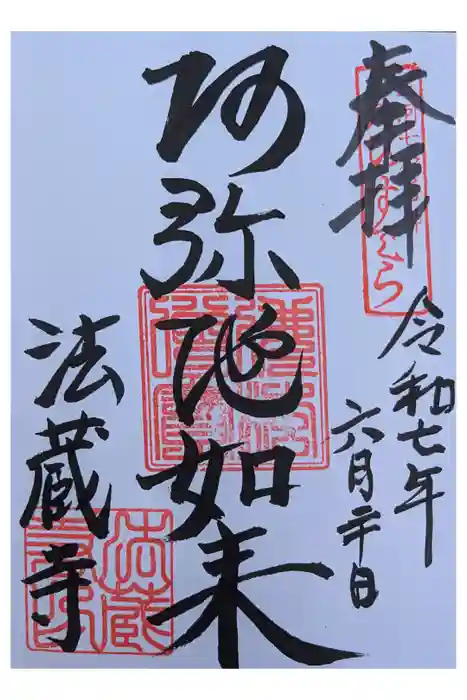 奉拝
令和七年
六月二十日
阿弥陁如来
法蔵寺